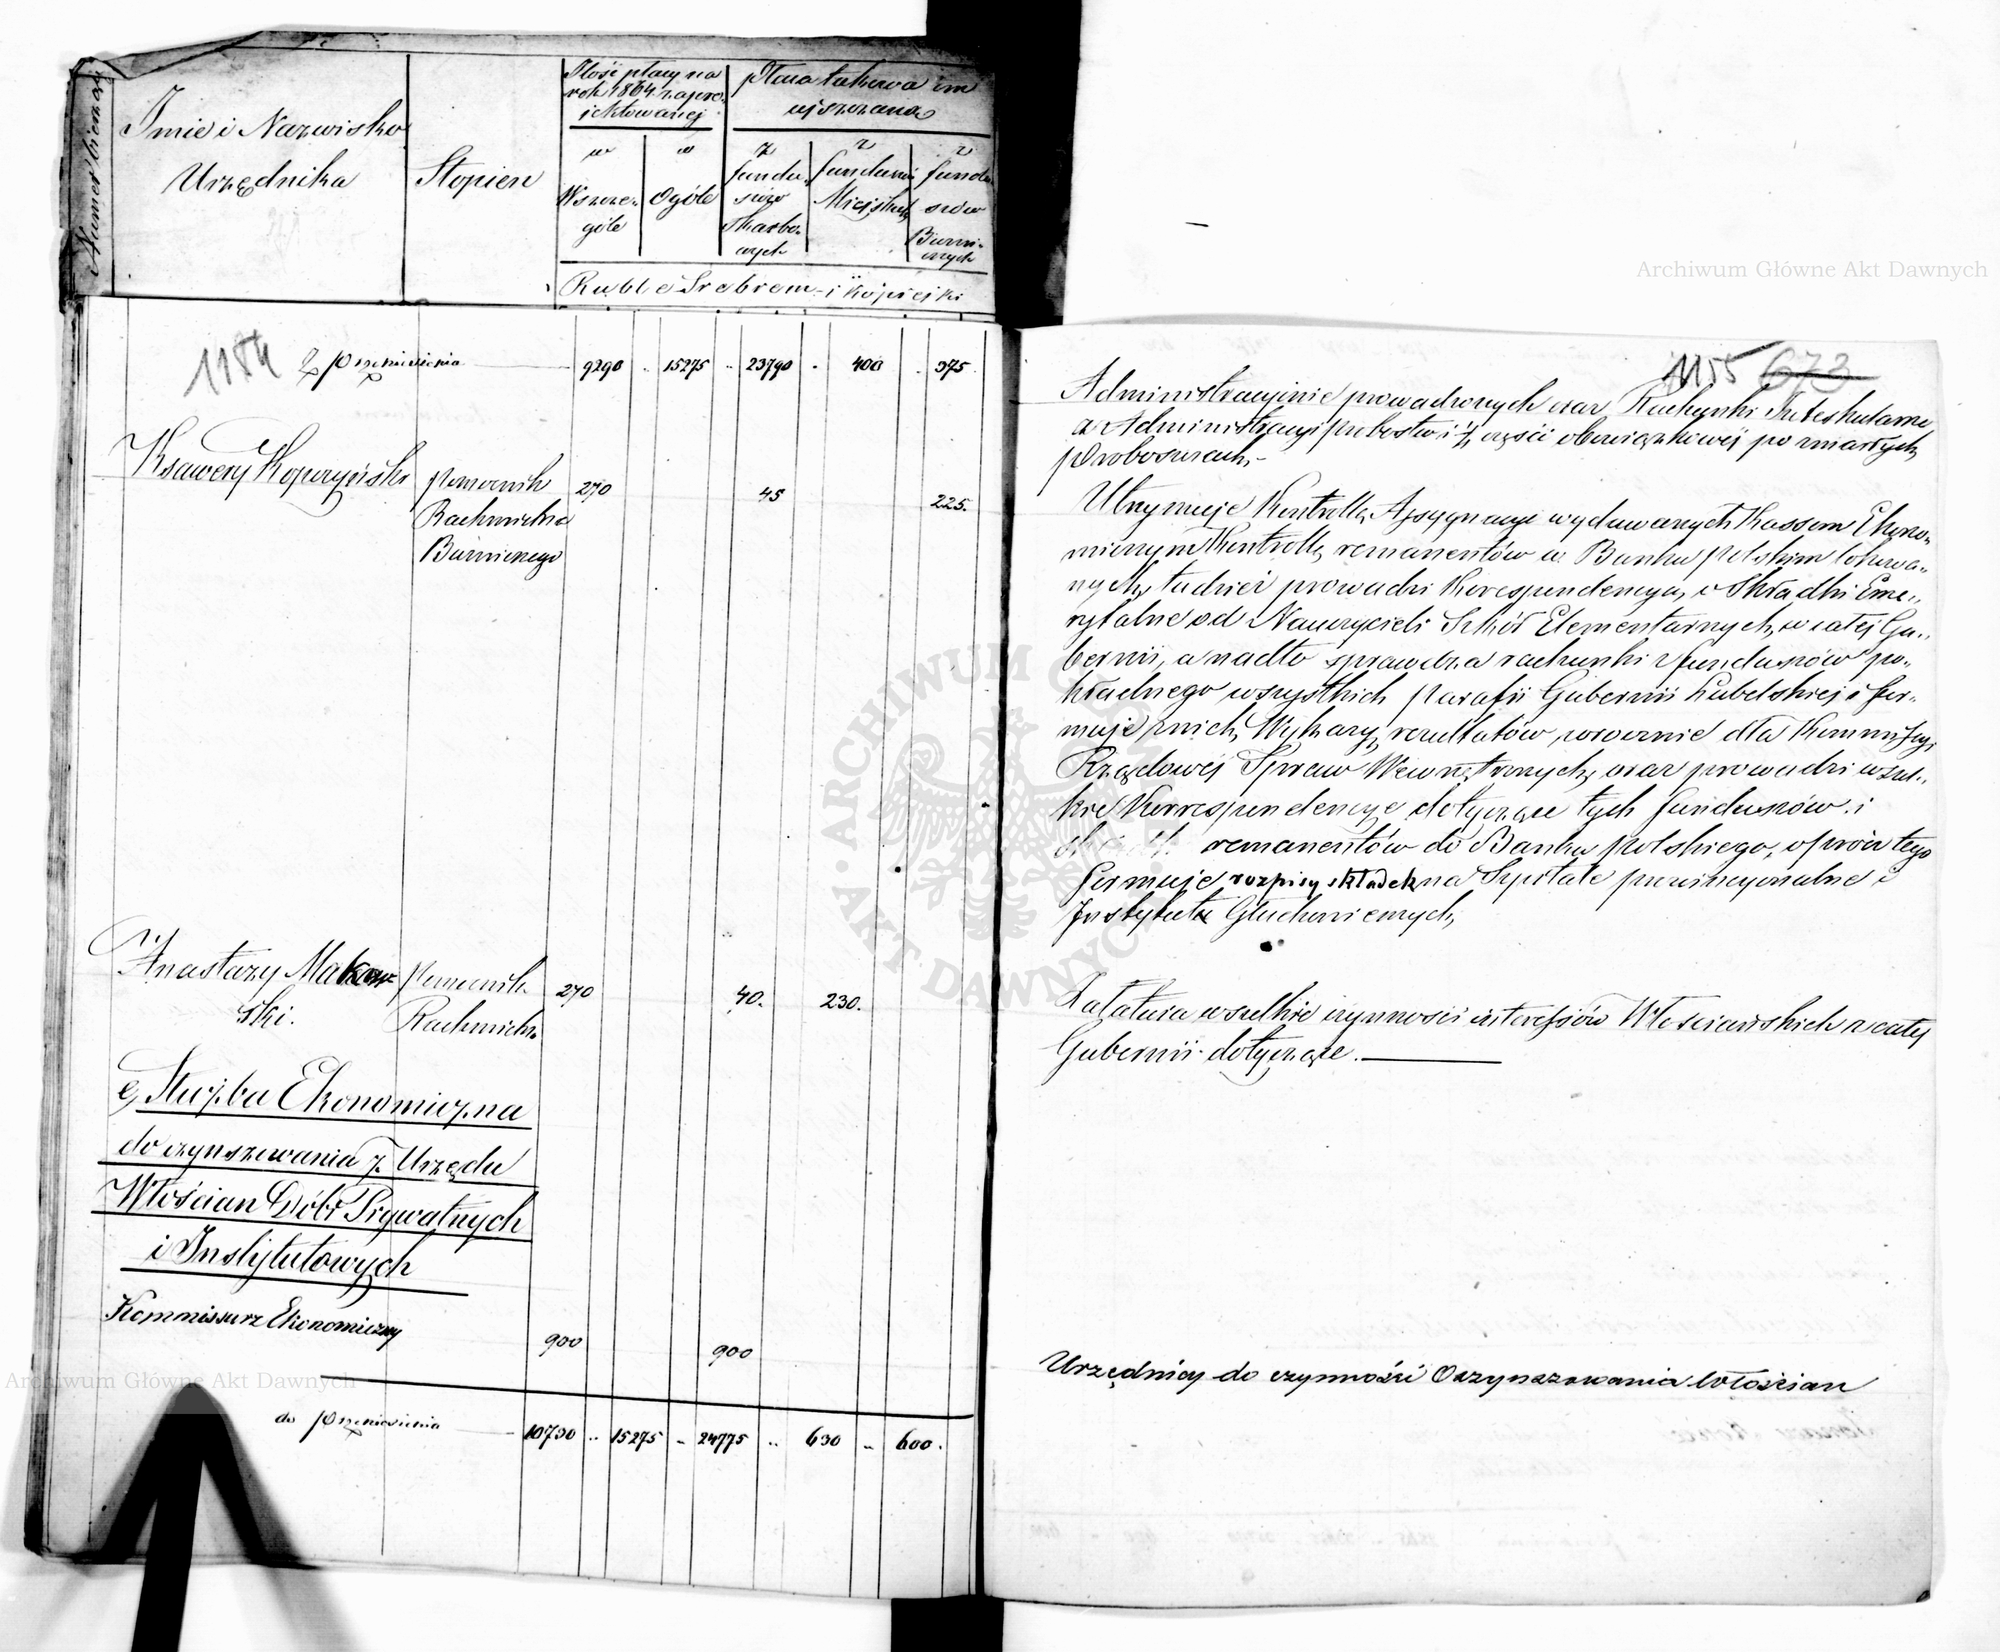 Numer bieżący
Imie i Nazwisko
Urzędnika
Stopien
Ilość płacy na
rok 1864 zapro-
iektowanej
w
Wszcze-
góle
w
Ogóle
Płaca takowa im
ujszczana
z
fundu-
szów
Skarbo-
wych
z
funduszów
Miejskich
z
fundu-
szów
Biurni-
cznych
Ruble Srebrem i kopiejki
1154
Z przeniesienia 9290 15275 23790 400 375
Ksawery Kopczyński pomocnik 270 45 225.
Rachmistrza
Biurnicznego
Anastazy Makow- pomocnik 270 40. 230.
ski. Rachmistrz.
e, Służba Ekonomiczna
do czynszowania z Urzędu
Włościan Dóbr Prywatnych
i Instytutowych
Kommissarz Ekonomiczny 900 900
do przeniesienia 10730 15275 24775 630 600.
1155 673
Administracyinie prowadzonych oraz Rachunki Interkalarne
z Administracyi probostw i części obowiązkowej po zmarłych
Proboszczach.
Utrzymuje Kontrollę Assygnacyi wydawanych Kassom Ekono-
micznym Kontrollę remanentów w Banku polskim lokowa-
nych, tudzież prowadzi Korespondencyą o Składki Eme-
rytalne od Nauczycieli Szkół Elementarnych, w całej Gu-
bernii, a nadto sprawdza rachunki z funduszów po-
kładnego wszystkich parafii Gubernii Lubelskiej i for-
muje z nich Wykazy rezultatów, corocznie dla Kommissyi
Rządowej Spraw Wewnętrznych, oraz prowadzi wszel-
kie Korrespondencye dotyczące tych funduszów i
remanentów do Banku polskiego, oprócz tego
formuje rozpisy składek na Szpitale prowincyonalne i
Instytuta Głuchoniemych,
Załatwia wszelkie czynności interessów Włościańskich z całej
Gubernii dotyczące.
Urzędnicy do czynności Oczynszowania Włościan
Archiwum Główne Akt Dawnych
Archiwum Główne Akt Dawnych
ARCHIWUM GŁÓWNE AKT DAWNYCH